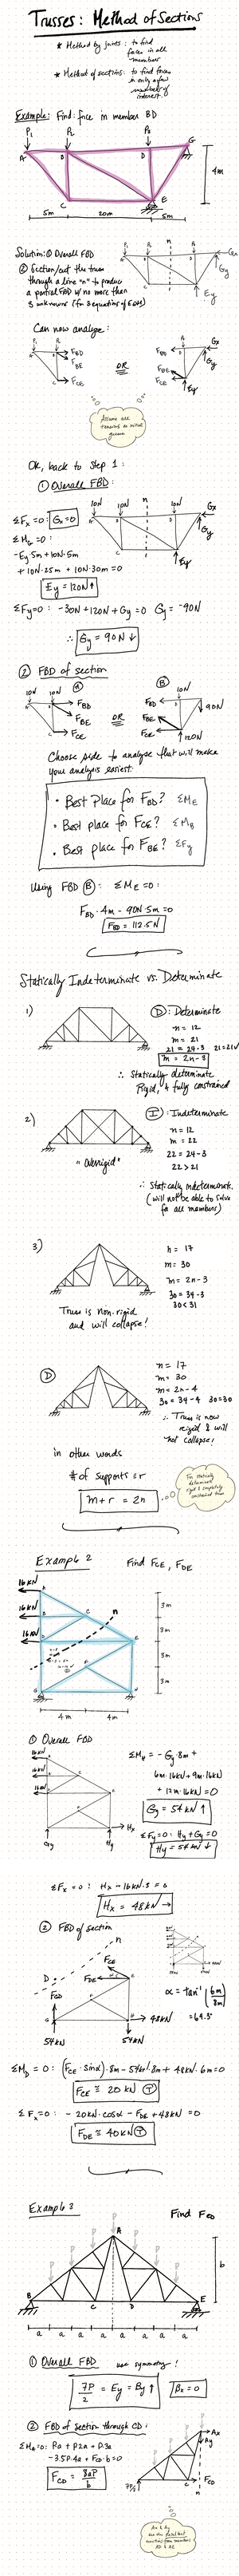 Trusses: Method of Sections
* Method by Joints: to find
force in all
members
* Method of sections: to find forces
in only a few
members of
interest.
Example: Find: force in member BD
P₁ P₂ P₃
A B D G
C E
4m
5m 20m 5m
Solution: ① Overall FBD
② Section/cut the truss
through a line "n" to produce
a partial FBD w/ no more than
3 unknowns (for 3 equations of EOM)
P₁ P₂ n P₃ Gx
Gy
Ey
Can now analyze:
FBD
FBE
FCE
OR
FBD
FBE
FCE
Gx
Gy
Ey
Assume all
tensions to initial
guess
Ok, back to Step 1:
① Overall FBD:
ΣFx = 0: Gx = 0
ΣMG = 0:
-Ey·5m + 10N·5m
+ 10N·25m + 10N·30m = 0
Ey = 120N ↑
10N 10N n 10N Gx
Gy
Ey
ΣFy=0: -30N + 120N + Gy = 0 Gy = -90N
∴ Gy = 90N ↓
② FBD of section
10N 10N Ⓐ
FBD
FBE
FCE
OR
Ⓑ 10N
FBD
FBE
FCE
90N
120N
Choose side to analyse that will make
your analysis easiest:
• Best Place for FBD? ΣME
• Best place for FCE? ΣMB
• Best place for FBE? ΣFy
Using FBD Ⓑ: ΣME = 0:
FBD·4m - 90N·5m = 0
FBD = 112.5N
Statically Indeterminate vs. Determinate
1)
Ⓓ: Determinate
n = 12
m = 21
21 = 24-3 21=21✓
m = 2n-3
∴ Statically determinate
Rigid, & fully constrained
2)
"Overrigid"
Ⓘ: Indeterminate
n = 12
m = 22
22 = 24-3
22 > 21
∴ Statically indeterminate
(will not be able to solve
for all members)
3)
n = 17
m = 30
m = 2n-3
30 = 34-3
30 < 31
Truss is non-rigid
and will collapse!
Ⓓ
n = 17
m = 30
m = 2n-4
30 = 34-4 30=30
∴ Truss is now
rigid & will
not collapse!
in other words
# of supports = r
m + r = 2n
For statically
determinate
rigid & completely
constrained truss
Example 2 Find FCE, FDE
16KN
16KN
16KN
n
3m
3m
3m
3m
4m 4m
① Overall FBD
16KN
16KN
16KN
Gy Hy Hx
ΣMH = -Gy·8m +
6m·16kN + 9m·16kN
+ 12m·16kN = 0
Gy = 54kN ↑
ΣFy=0: Hy + Gy = 0
Hy = 54kN ↓
ΣFx = 0: Hx - 16kN·3 = 0
Hx = 48kN →
② FBD of section
n
FCE
FDE
D
FGD
48KN
54KN 54KN
α = tan⁻¹(6m/8m)
ΣMD = 0: (FCE·sinα)·8m - 54kN·8m + 48kN·6m = 0
FCE ≅ 20 kN Ⓣ
ΣFx = 0: -20kN·cosα - FDE + 48kN = 0
FDE ≅ 40kN Ⓣ
Example 3 Find FCD
P P P P P P P
A
B C D E
b
a a a a a a a a
① Overall FBD use symmetry!
7P/2 = Ey = By ↑ Bx = 0
② FBD of section through CD:
ΣMA=0: Pa + P2a + P3a
- 3.5P·4a + FCD·b = 0
FCD = 8aP/b
Ax
Ay
C FCD
7P/2
n